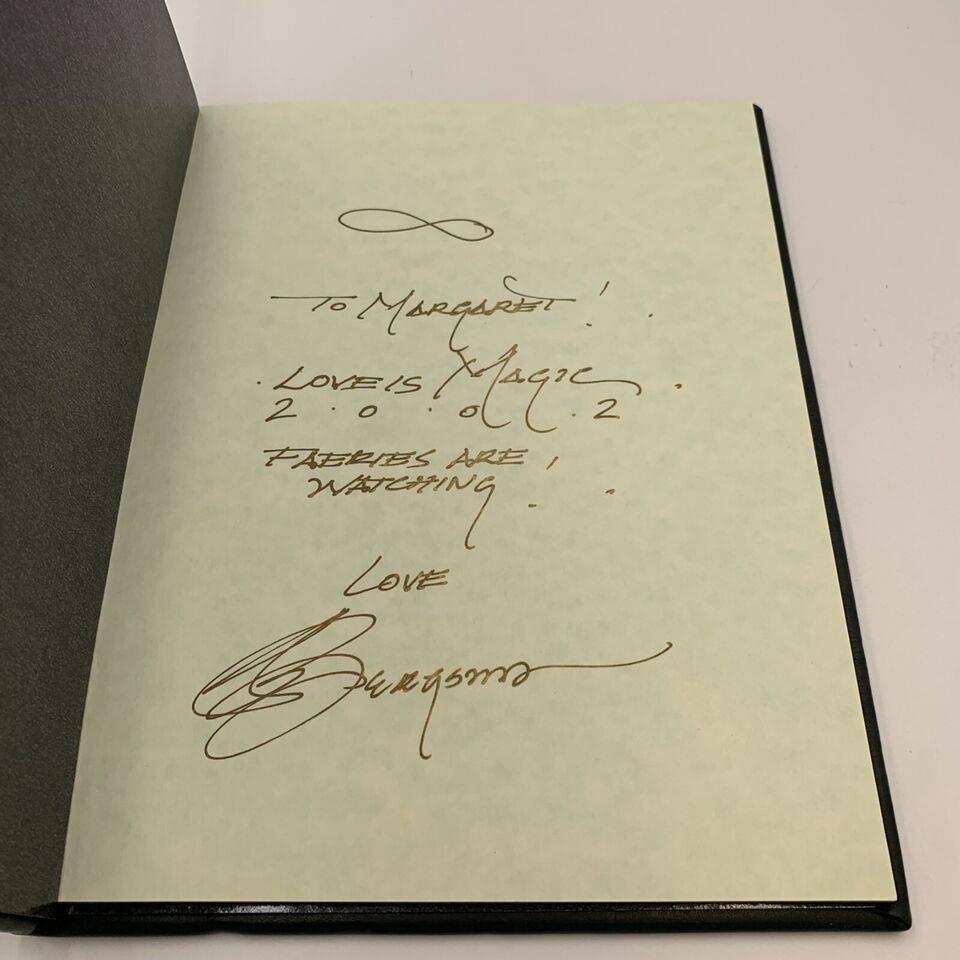 To Margaret!
. Love is Magic .
2 . 0 . 0 . 2
Faeries are
Watching!
Love
Bergsma